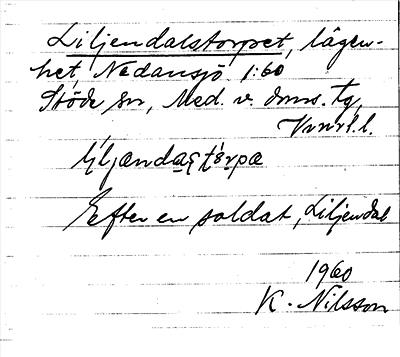 Liljendalstorpet, lägen-
het, Nedansjö 1:60
Stöde sn, Med. v. dms. tg,
Vrnrl.l.
Liljendal
Efter en soldat, Liljendal
1960
K. Nilsson